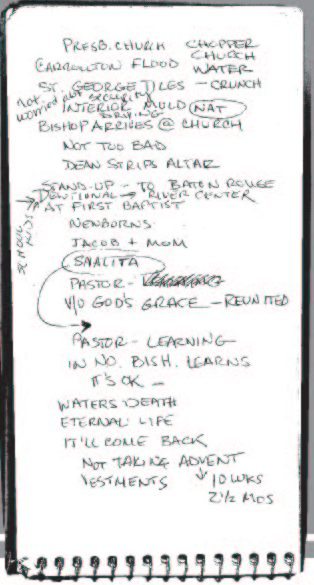 PRESB. CHURCH CHOPPER
CHURCH
CARROLLTON FLOOD WATER
ST. GEORGE TILES - CRUNCH
not worried abt security
INTERIOR MOLD NAT
DRYING
BISHOP ARRIVES @ CHURCH
NOT TOO BAD
DEAN STRIPS ALTAR
STAND-UP - TO BATON ROUGE
DEVOTIONAL → RIVER CENTER
AT FIRST BAPTIST
SCHOOL KIDS
NEWBORNS
JACOB + MOM
PASTOR -
V/O GOD'S GRACE - REUNITED
PASTOR - LEARNING
IN NO. BISH. LEARNS
IT'S OK -
WATERS DEATH
ETERNAL LIFE
IT'LL COME BACK
NOT TAKING ADVENT
VESTMENTS ↓ 10 WKS
2 1/2 MOS